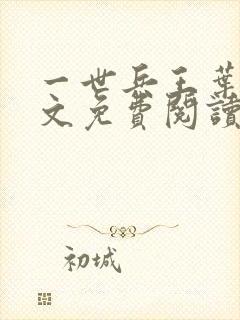 一世兵王葉
文免費閱讀
初城